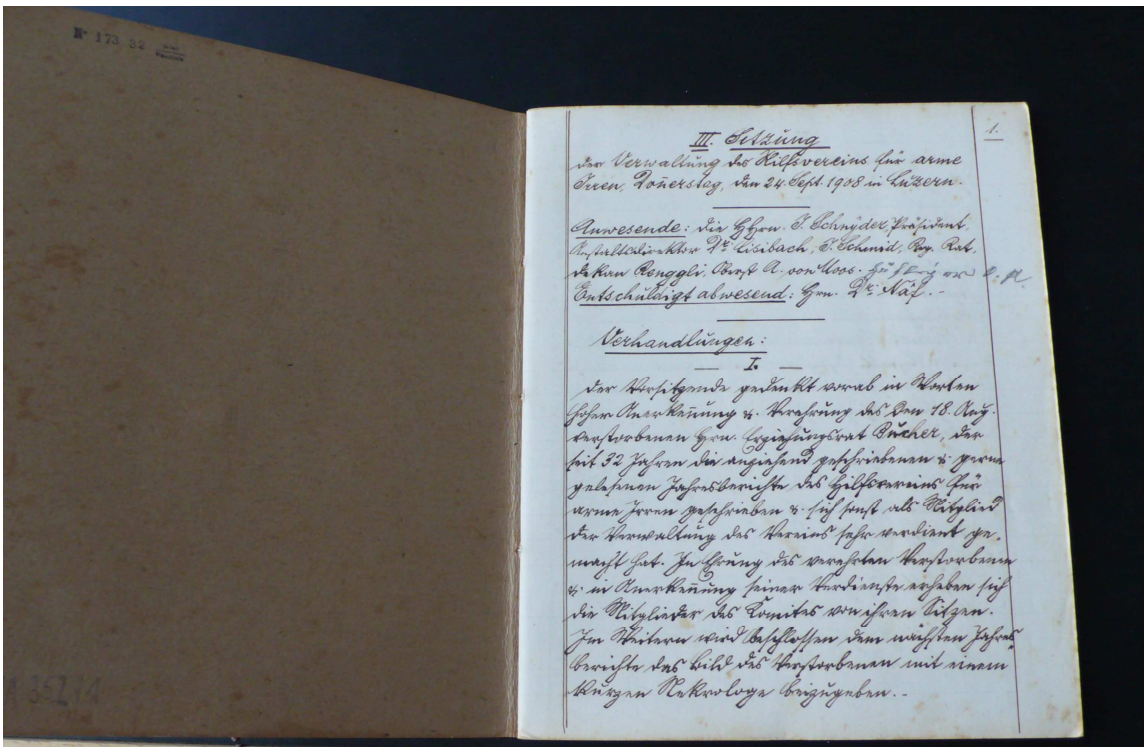 Nº 173 32
A 352/1
1.
III. Setzung
der Verwaltung des Hilfsvereins für arme
Irren, Don̄erstag, den 24. Sept. 1908 in Luzern.
Anwesende: die HHrn. J. Schnyder, Präsident,
Anstaltsdirektor Dr. Lisibach, J. Schmid, Reg. Rat,
Dekan Renggli, Oberst A. von Moos.
Entschuldigt abwesend: Hrn. Dr. Näf. -
Verhandlungen:
I.
Der Vorsitzende gedenkt vorab in Worten
hoher Anerken̄ung & Verehrung des den 18. Aug.
verstorbenen Hrn. Erziehungsrat Bucher, der
seit 32 Jahren die anziehend geschriebenen & gerne
gelesenen Jahresberichte des Hilfsvereins für
arme Irren geschrieben & sich sonst als Mitglied
der Verwaltung des Vereins sehr verdient ge-
macht hat. In Ehrung des verehrten Verstorbenen
& in Anerken̄ung seiner Verdienste erheben sich
die Mitglieder des Komites von ihren Sitzen.
Im Weitern wird beschlossen dem nächsten Jahres-
berichte das Bild des Verstorbenen mit einem
kurzen Nekrologe beizugeben. -